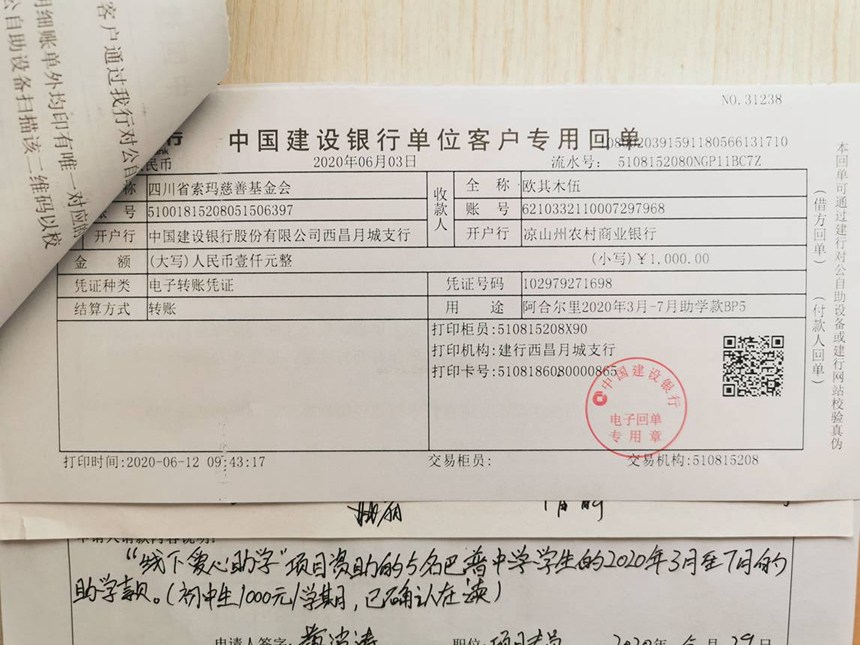 客户通过我行对公自
明细账单外均印有唯一对应
公自助设备扫描该二维码以校
NO.31238
中国建设银行单位客户专用回单
民币
2020年06月03日
流水号: 5108152080NGP11BC7Z
称 四川省索玛慈善基金会
收款人
全 称 欧其木伍
号 51001815208051506397
账 号 6210332110007297968
开户行 中国建设银行股份有限公司西昌月城支行
开户行 凉山州农村商业银行
金 额 (大写)人民币壹仟元整 (小写)¥1,000.00
凭证种类 电子转账凭证 凭证号码 102979271698
结算方式 转账 用 途 阿合尔里2020年3月-7月助学款BP5
打印柜员:510815208X90
打印机构:建行西昌月城支行
打印卡号:5108186080000865
中国建设银行
电子回单
专用章
打印时间:2020-06-12 09:43:17 交易柜员: 交易机构:510815208
本回单可通过建行对公自助设备或建行网站校验真伪
(借方回单)
(付款人回单)
“线下爱心助学”项目资助的5名巴普中学学生的2020年3月至7月的
助学款。(初中生1000元/学期,已确认在读)
申请人签字: 职位:项目专员 2020年5月29日